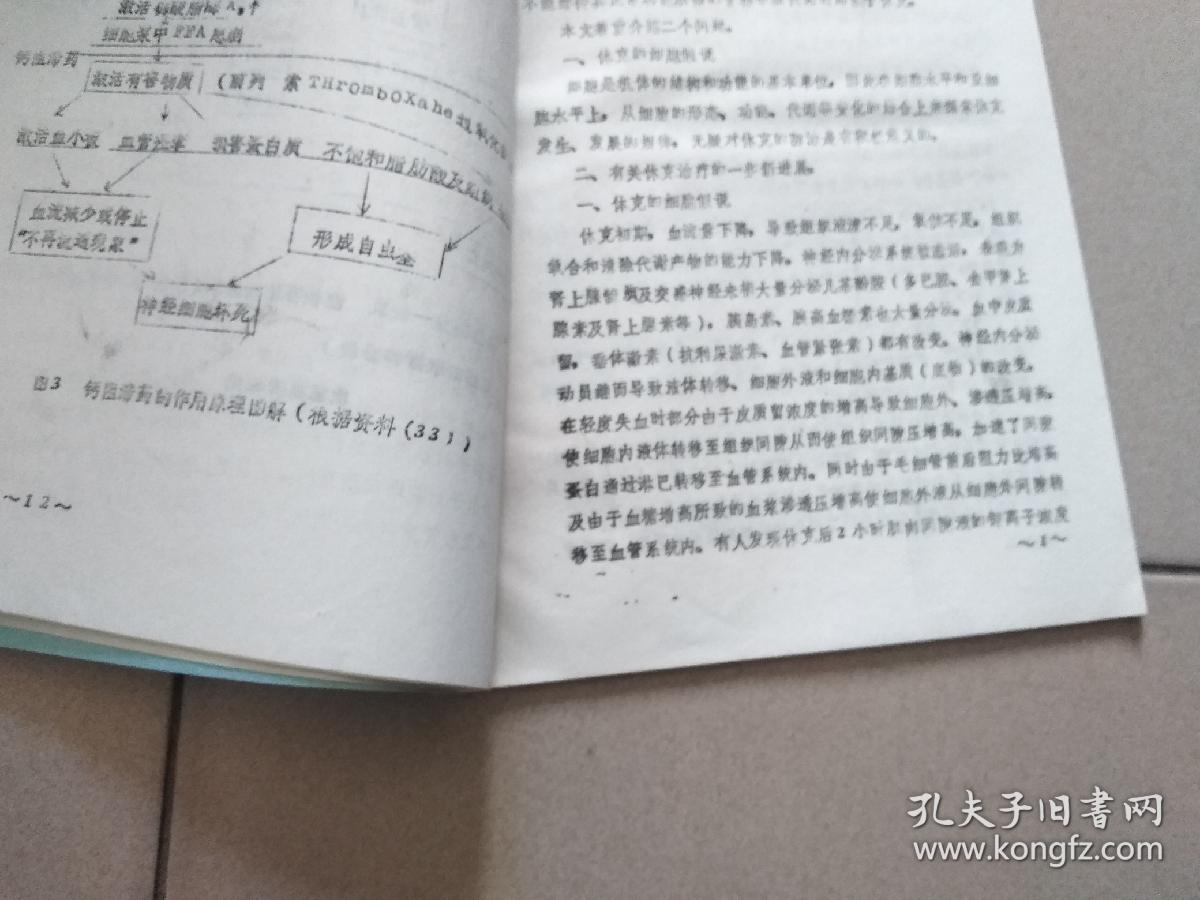 激活磷脂酶A₂个
细胞浆中FFA
钙阻滞药
激活有害物质 (前列 素THromboXahe
激活血小板 血管 损害蛋白质 不饱和脂肪酸及
血流减少或停止
"不再流通现象"
形成自由基
神经细胞坏死
图3 钙阻滞药的作用原理图解(根据资料(33))
~12~
本文着重介绍二个问题。
一、休克的细胞假说
细胞是机体的结构和功能的基本单位,因此在细胞水平和亚细
胞水平上,从细胞的形态、功能、代谢等变化的结合上来探索休克
发生、发展的规律,无疑对休克的防治是有积极意义的。
二、有关休克治疗的一些新进展。
一、休克的细胞假说
休克初期,血流量下降,导致组织灌溉不足,氧供不足,组织
氧合和清除代谢产物的能力下降。神经内分泌系统被激活,表现为
肾上腺髓质及交感神经末梢大量分泌儿茶酚胺(多巴胺、去甲肾上
腺素及肾上腺素等)。胰岛素、胰高血糖素也大量分泌。血中皮质
醇,垂体激素(抗利尿激素、血管紧张素)都有改变。神经内分泌
动员继而导致液体转移、细胞外液和细胞内基质(底物)的改变。
在轻度失血时部分由于皮质醇浓度的增高导致细胞外、渗透压增高,
使细胞内液体转移至组织间隙从而使组织间隙压增高,加速了间隙
蛋白通过淋巴转移至血管系统内。同时由于毛细管前后阻力比增高
及由于血糖增高所致的血浆渗透压增高使细胞外液从细胞外间隙转
移至血管系统内。有人发现休克后2小时肌肉间隙液的钾离子浓度
~1~
孔夫子旧书网
www.kongfz.com